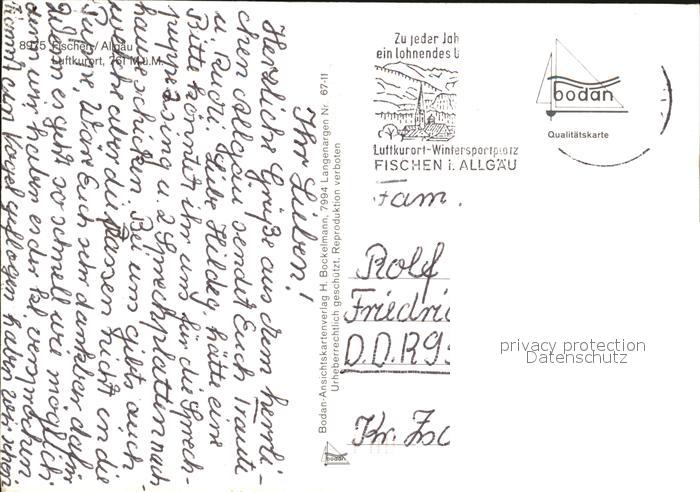 8975 Fischen / Allgäu
Luftkurort, 761 M.ü.M.
Ihr Lieben!
Herzliche Grüße aus dem herrli-
chen Allgäu sendet Euch Traute
u. Rudi. Liebe Hildeg. hätte eine
Bitte könntet ihr uns für die Sprech-
puppe 2sing u. 2 Sprechplatten nach
hause schicken. Bei uns gibts auch
welche aber die passen nicht in die
Puppe. Wäre Euch sehr dankbar dafür
Wenn es geht so schnell wie möglich
denn wir haben es der kl. versprochen.
haben wir schon
Bodan-Ansichtskartenverlag H. Bockelmann, 7994 Langenargen Nr. 67-11
Urheberrechtlich geschützt, Reproduktion verboten
bodan
Zu jeder Jah
ein lohnendes
Luftkurort-Wintersportplatz
FISCHEN i. ALLGÄU
bodan
Qualitätskarte
Fam.
Rolf
Friedri
D.D.R 9
Kr. Zsc
privacy protection
Datenschutz